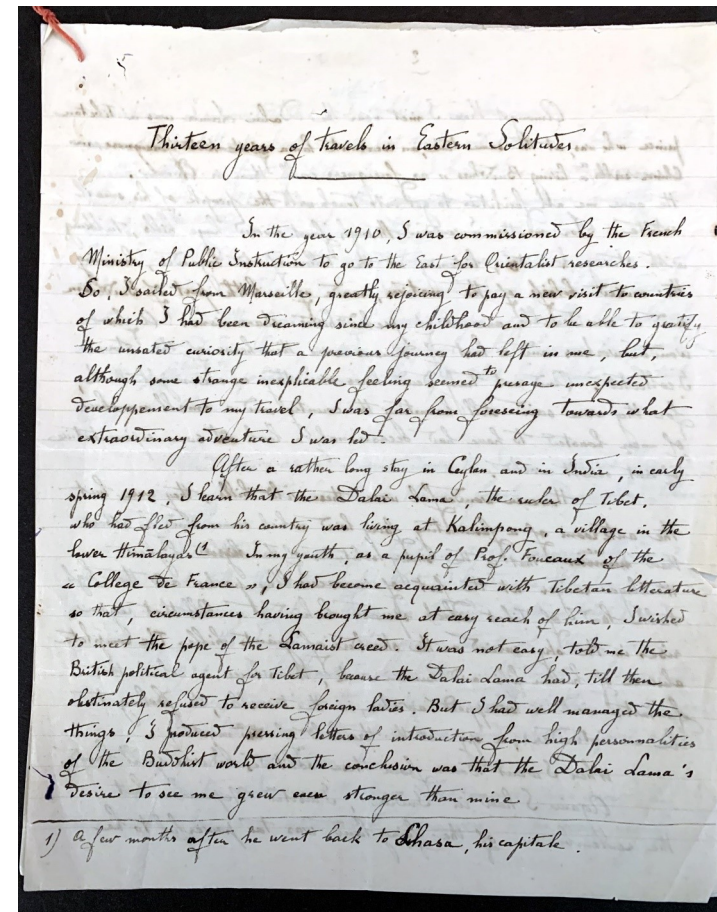 Thirteen years of travels in Eastern Solitudes
In the year 1910, I was commissioned by the French
Ministry of Public Instruction to go to the East for Orientalist researches.
So, I sailed from Marseille, greatly rejoicing to pay a new visit to countries
of which I had been dreaming since my childhood and to be able to gratify
the unsated curiosity that a previous journey had left in me, but,
although some strange inexplicable feeling seemed to presage unexpected
developpement to my travel, I was far from foreseing towards what
extraordinary adventure I was led.
After a rather long stay in Ceylan and in India, in early
spring 1912, I learn that the Dalai Lama, the ruler of Tibet,
who had fled from his country was living at Kalimpong, a village in the
lower Himālayas (1 In my youth, as a pupil of Prof. Foucaux of the
« College de France », I had become acquainted with Tibetan litterature
so that, circumstances having brought me at easy reach of him, I wished
to meet the pope of the Lamaist creed. It was not easy, told me the
British political agent for Tibet, because the Dalai Lama had, till then
obstinately refused to receive foreign ladies. But I had well managed the
things, I produced pressing letters of introduction from high personnalities
of the Buddhist world and the conclusion was that the Dalai Lama's
desire to see me grew even stronger than mine
1) A few months after he went back to Lhasa, his capitale.